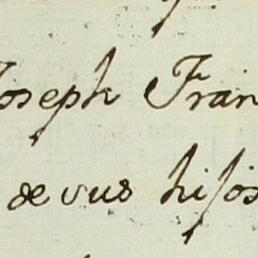 Joseph Fran
de sus hijos